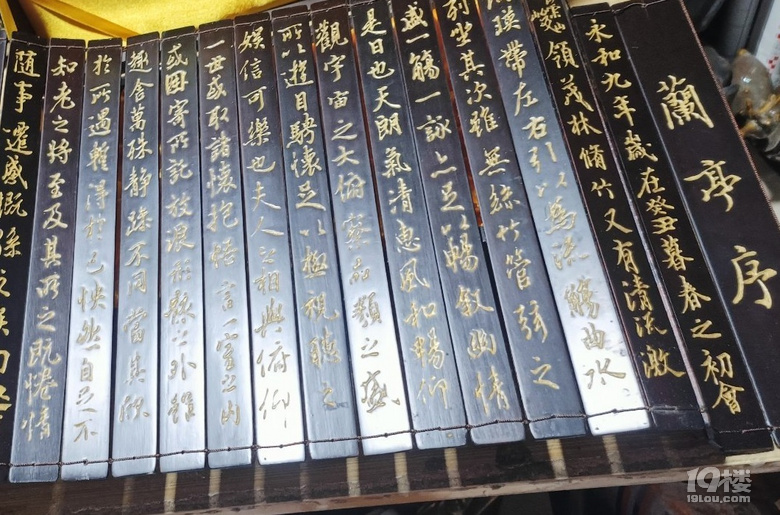 蘭亭序
永和九年歲在癸丑暮春之初會
領茂林脩竹又有清流激
暎帶左右引以為流觴曲水
列坐其次雖無絲竹管弦之
盛一觴一詠亦足以暢敘幽情
是日也天朗氣清惠風和暢仰
觀宇宙之大俯察品類之盛
所以遊目騁懷足以極視聽之
娛信可樂也夫人之相與俯仰
一世或取諸懷抱悟言一室之內
或因寄所託放浪形骸之外雖
趣舍萬殊靜躁不同當其欣
於所遇暫得於己快然自足不
知老之將至及其所之既惓情
隨事遷感慨係之矣向
19楼
19lou.com